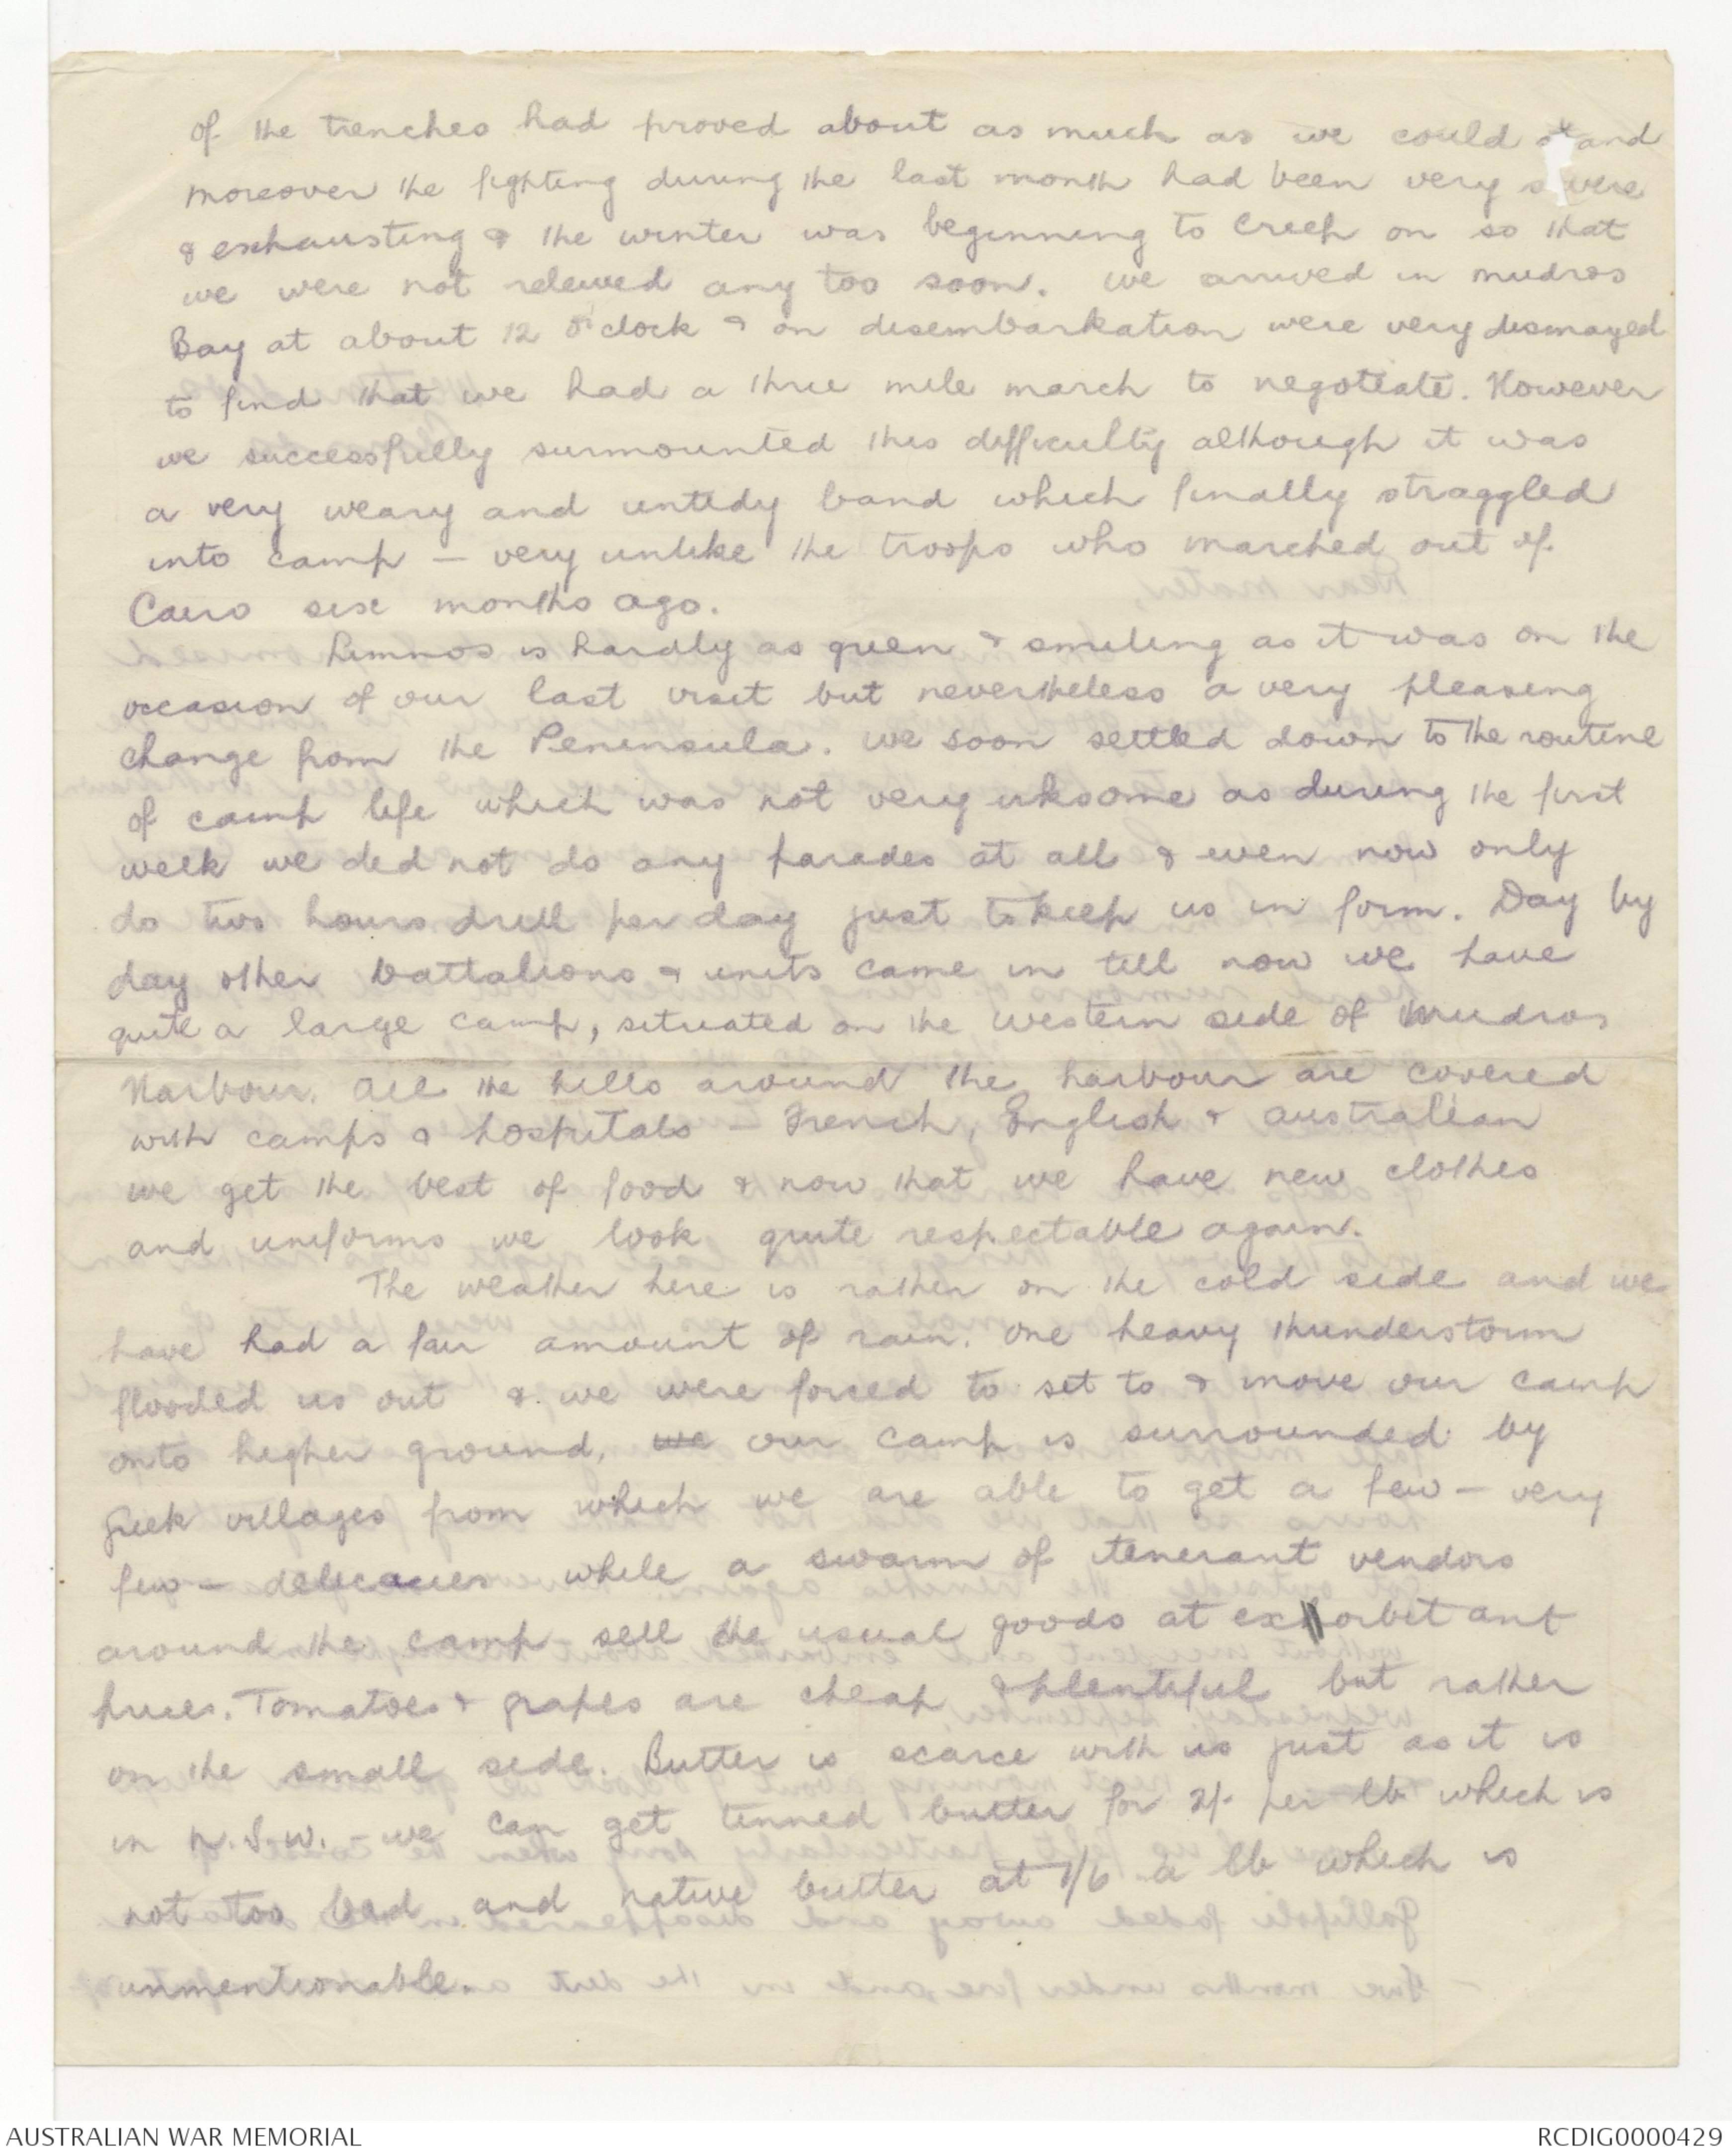 of the trenches had proved about as much as we could stand
moreover the fighting during the last month had been very severe
& exhausting & the winter was beginning to creep on so that
we were not relieved any too soon. We arrived in Mudros
Bay at about 12 o'clock & on disembarkation were very dismayed
to find that we had a three mile march to negotiate. However
we successfully surmounted this difficulty although it was
a very weary and untidy band which finally straggled
into camp – very unlike the troops who marched out of
Cairo six months ago.
Lemnos is hardly as green & smiling as it was on the
occasion of our last visit but nevertheless a very pleasing
change from the Peninsula. We soon settled down to the routine
of camp life which was not very irksome as during the first
week we did not do any parades at all & even now only
do two hours drill per day just to keep us in form. Day by
day other battalions & units came in till now we have
quite a large camp, situated on the western side of Mudros
Harbour. All the hills around the harbour are covered
with camps & hospitals – French, English & Australian
we get the best of food & now that we have new clothes
and uniforms we look quite respectable again.
The weather here is rather on the cold side and we
have had a fair amount of rain. One heavy thunderstorm
flooded us out & we were forced to set to & move our camp
onto higher ground. we our camp is surrounded by
Greek villages from which we are able to get a few – very
few – delicacies while a swarm of itenerant vendors
around the camp sell the usual goods at exhorbitant
prices. Tomatoes & grapes are cheap & plentiful but rather
on the small side. Butter is scarce with us just as it is
in N.S.W. – we can get tinned butter for 2/- per lb which is
not too bad and native butter at 1/6 a lb which is
unmentionable.
AUSTRALIAN WAR MEMORIAL
RCDIG0000429